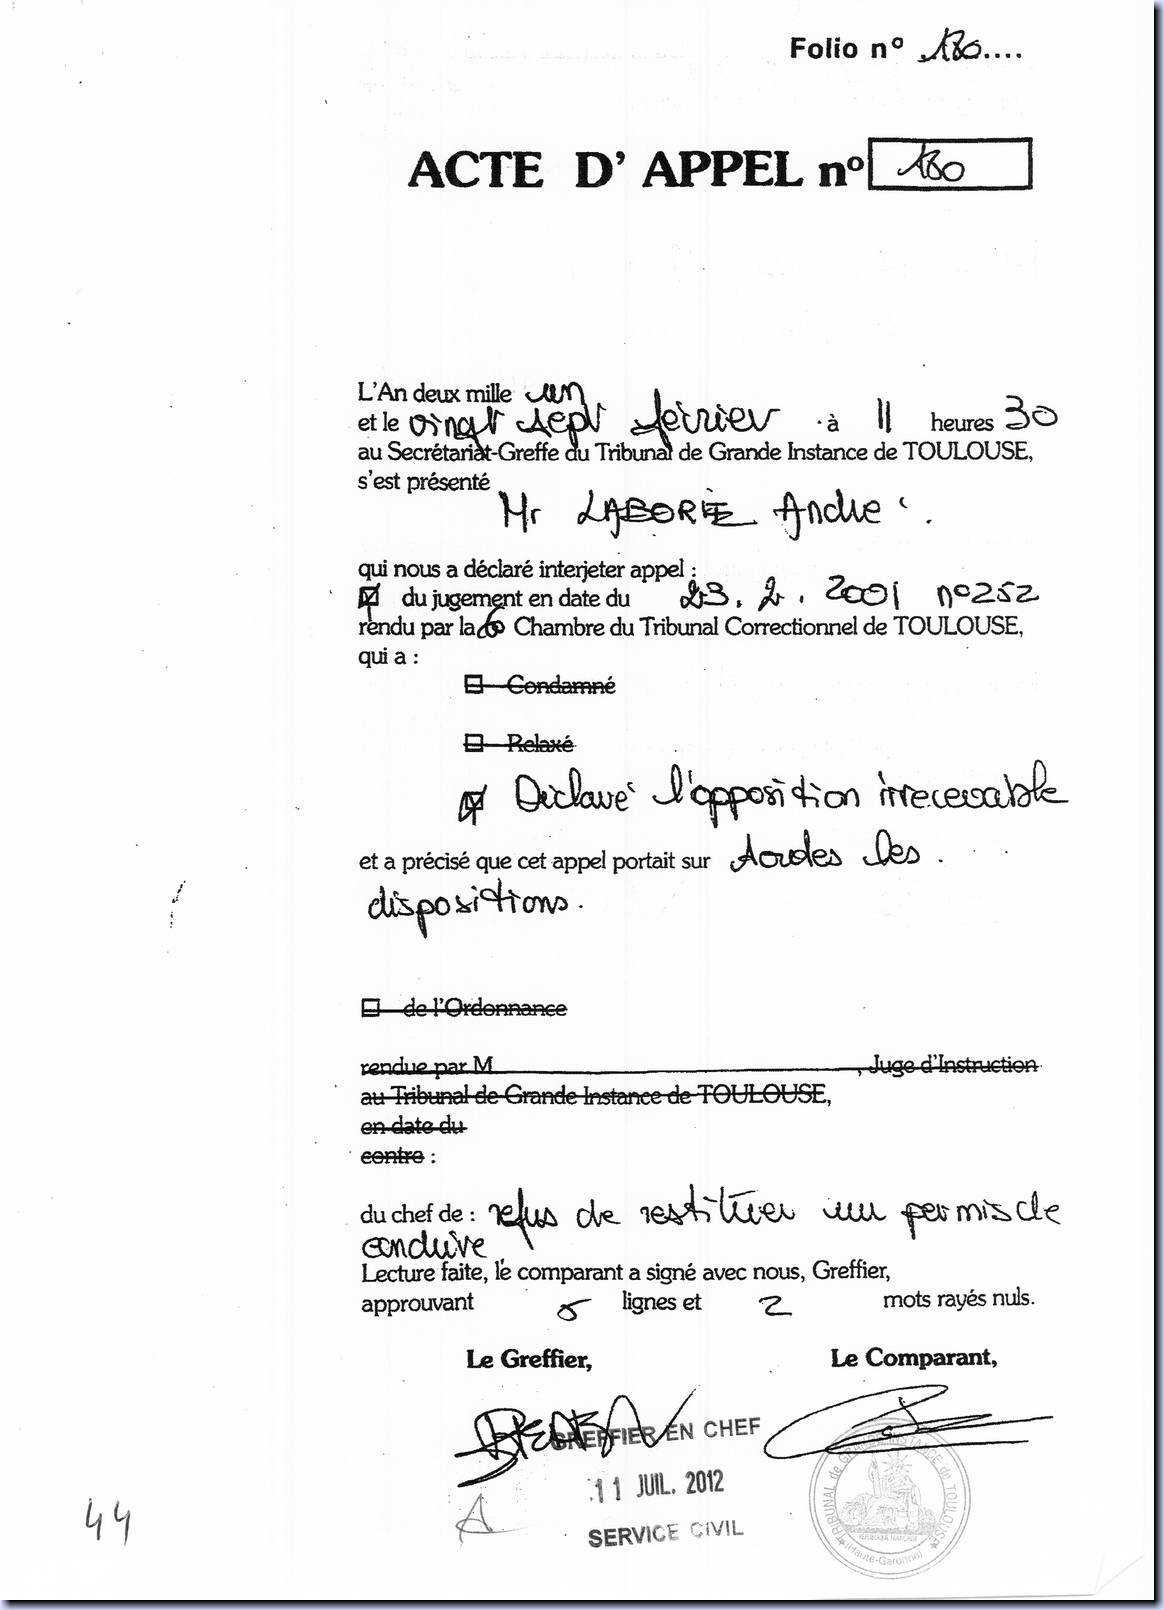 Folio n° 180....
ACTE D' APPEL n° 180
L'An deux mille un
et le vingt sept février à 11 heures 30
au Secrétariat-Greffe du Tribunal de Grande Instance de TOULOUSE,
s'est présenté
Mr LABORIE André .
qui nous a déclaré interjeter appel :
du jugement en date du 23. 2. 2001 n°252
rendu par la 6 Chambre du Tribunal Correctionnel de TOULOUSE,
qui a :
Condamné
Relaxé
Déclaré l'opposition irrecevable
et a précisé que cet appel portait sur toutes les
dispositions.
de l'Ordonnance
rendue par M , Juge d'Instruction
au Tribunal de Grande Instance de TOULOUSE,
en date du
contre :
du chef de : refus de restituer un permis de
conduire
Lecture faite, le comparant a signé avec nous, Greffier,
approuvant lignes et 2 mots rayés nuls.
Le Greffier, Le Comparant,
GREFFIER EN CHEF
11 JUIL. 2012
SERVICE CIVIL
TRIBUNAL de GRANDE INSTANCE de TOULOUSE
(Haute-Garonne)
44